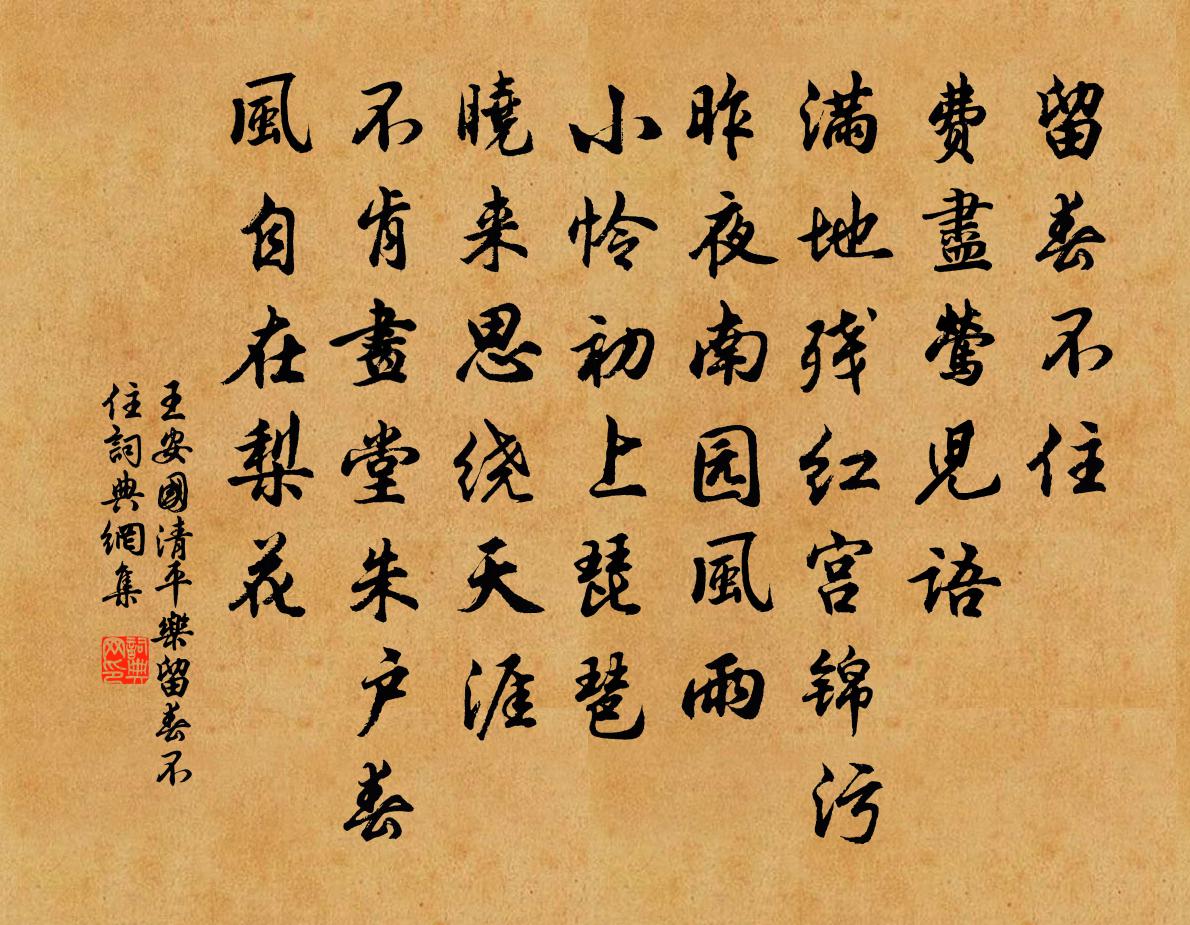 留春不住
費盡鶯児語
满地残红宫锦污
昨夜南园風雨
小怜初上琵琶
曉来思绕天涯
不肯畫堂朱户
春風自在梨花
王安國清平樂留春不
住詞典網集
詞典
网印